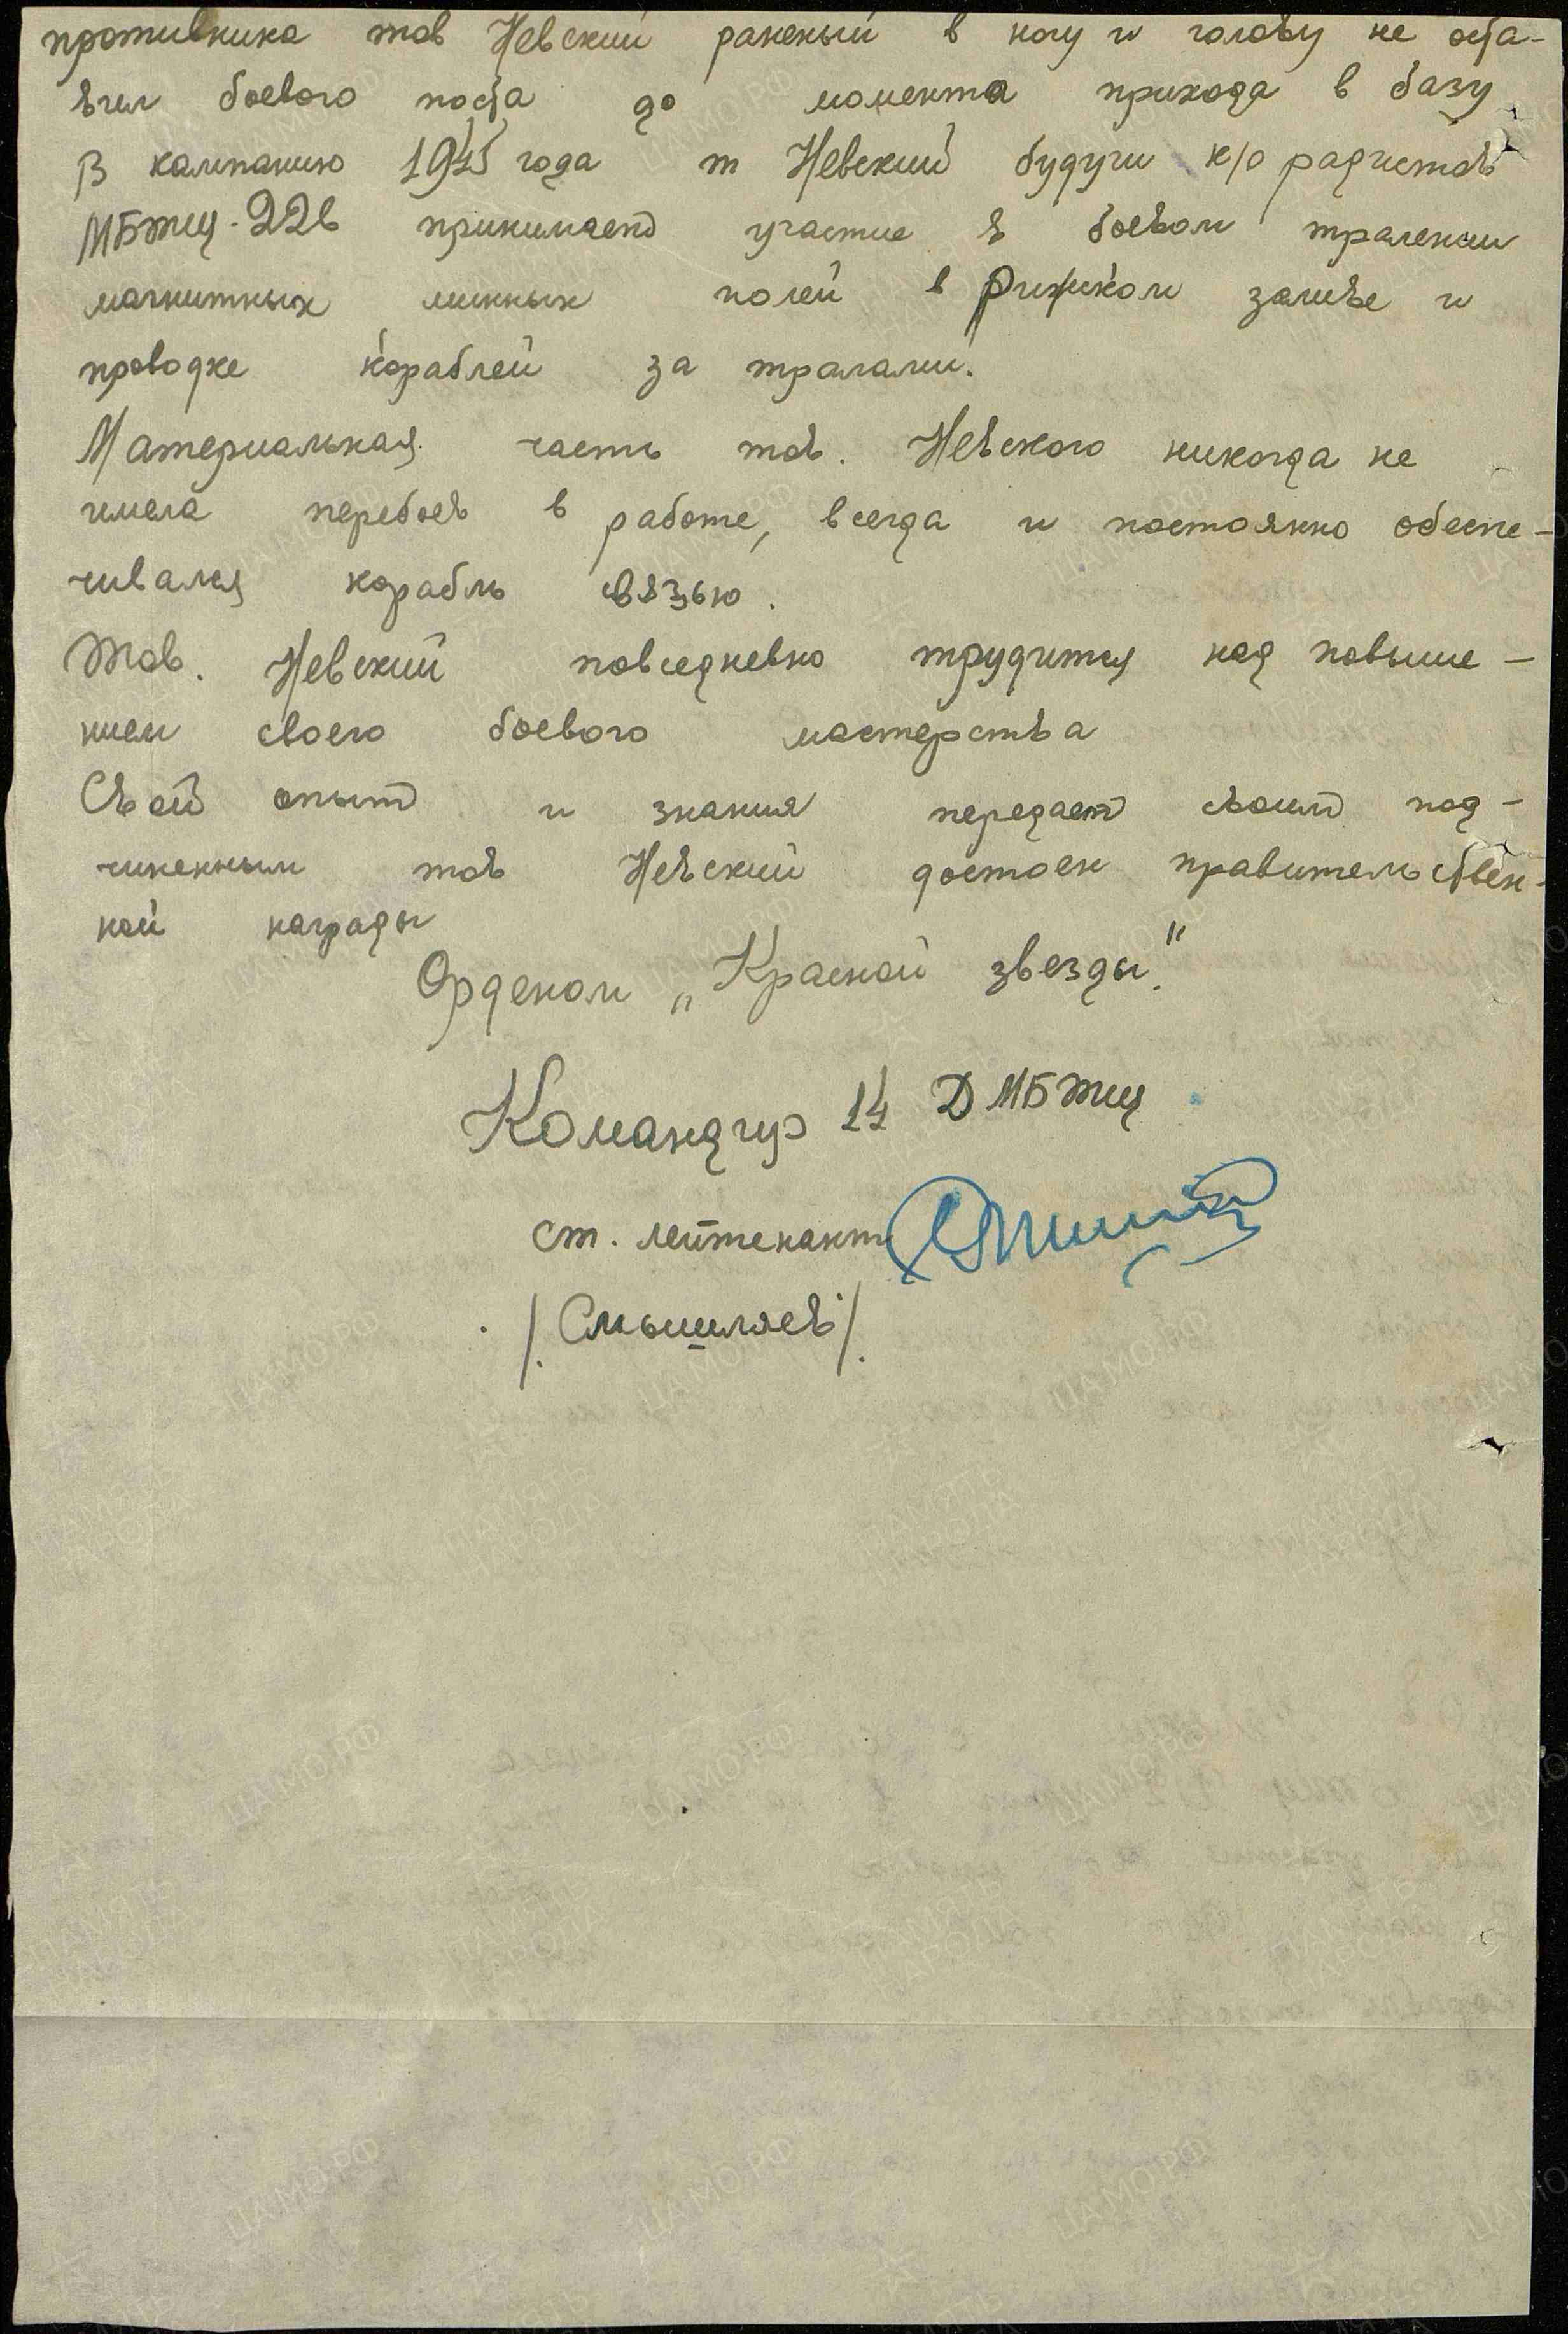 противника тов Невский раненый в ногу и голову не оста-
вил боевого поста до момента прихода в базу
В кампанию 1945 года т Невский будучи к/о радистов
МБТЩ-226 принимает участие в боевом тралении
магнитных минных полей в Рижском заливе и
проводке кораблей за тралами.
Материальная часть тов. Невского никогда не
имела перебоев в работе, всегда и постоянно обеспе-
чивался корабль связью.
Тов. Невский повседневно трудится над повыше-
нием своего боевого мастерства
Свой опыт и знания передает своим под-
чиненным тов Невский достоен правительствен-
ной награды
Орденом „Красной звезды."
Командир 14 ДМБТЩ
ст. лейтенант
/Смышляев/